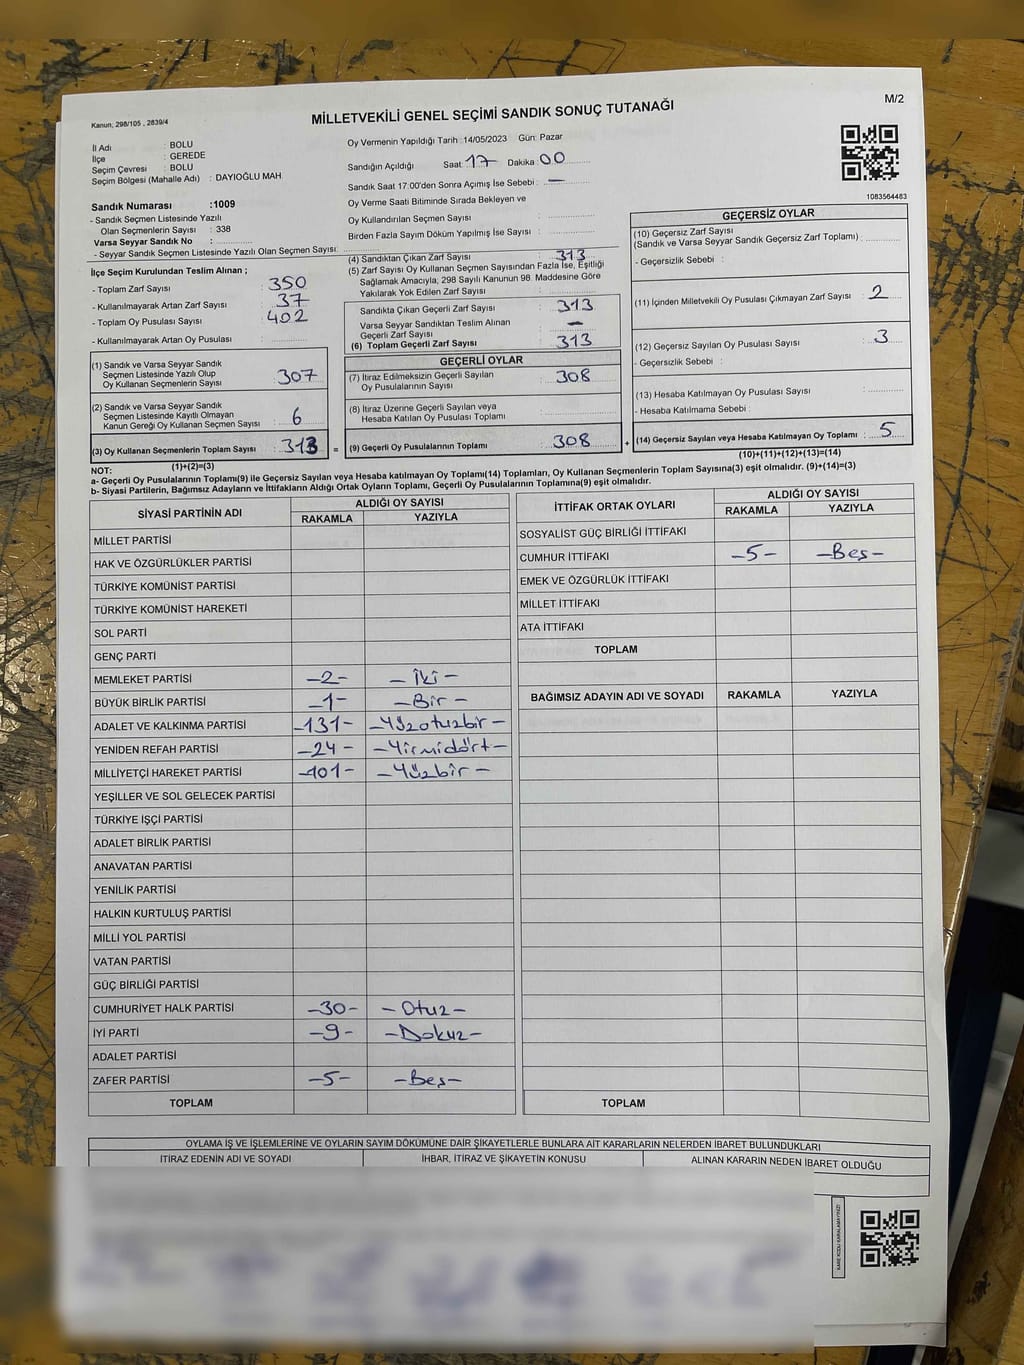 M/2
Kanun, 298/105 , 2839/4
MİLLETVEKİLİ GENEL SEÇİMİ SANDIK SONUÇ TUTANAĞI
İl Adı : BOLU
İlçe : GEREDE
Seçim Çevresi : BOLU
Seçim Bölgesi (Mahalle Adı) : DAYIOĞLU MAH.
Oy Vermenin Yapıldığı Tarih :14/05/2023 Gün: Pazar
Sandığın Açıldığı Saat: 17 Dakika: 00
Sandık Saat 17.00'den Sonra Açımış İse Sebebi : —
Oy Verme Saati Bitiminde Sırada Bekleyen ve
Oy Kullandırılan Seçmen Sayısı :
Birden Fazla Sayım Döküm Yapılmış İse Sayısı :
1083564483
Sandık Numarası :1009
- Sandık Seçmen Listesinde Yazılı
Olan Seçmenlerin Sayısı : 338
Varsa Seyyar Sandık No :
- Seyyar Sandık Seçmen Listesinde Yazılı Olan Seçmen Sayısı:
İlçe Seçim Kurulundan Teslim Alınan ;
- Toplam Zarf Sayısı : 350
- Kullanılmayarak Artan Zarf Sayısı : 37
- Toplam Oy Pusulası Sayısı : 402
- Kullanılmayarak Artan Oy Pusulası :
(1) Sandık ve Varsa Seyyar Sandık
Seçmen Listesinde Yazılı Olup
Oy Kullanan Seçmenlerin Sayısı : 307
(2) Sandık ve Varsa Seyyar Sandık
Seçmen Listesinde Kayıtlı Olmayan
Kanun Gereği Oy Kullanan Seçmen Sayısı : 6
(3) Oy Kullanan Seçmenlerin Toplam Sayısı : 313
(1)+(2)=(3)
(4) Sandıktan Çıkan Zarf Sayısı : 313
(5) Zarf Sayısı Oy Kullanan Seçmen Sayısından Fazla İse, Eşitliği
Sağlamak Amacıyla; 298 Sayılı Kanunun 98. Maddesine Göre
Yakılarak Yok Edilen Zarf Sayısı :
Sandıkta Çıkan Geçerli Zarf Sayısı : 313
Varsa Seyyar Sandıktan Teslim Alınan
Geçerli Zarf Sayısı : —
(6) Toplam Geçerli Zarf Sayısı : 313
GEÇERLİ OYLAR
(7) İtiraz Edilmeksizin Geçerli Sayılan
Oy Pusulalarının Sayısı : 308
(8) İtiraz Üzerine Geçerli Sayılan veya
Hesaba Katılan Oy Pusulası Toplamı :
= (9) Geçerli Oy Pusulalarının Toplamı : 308
GEÇERSİZ OYLAR
(10) Geçersiz Zarf Sayısı
(Sandık ve Varsa Seyyar Sandık Geçersiz Zarf Toplamı) :
- Geçersizlik Sebebi :
(11) İçinden Milletvekili Oy Pusulası Çıkmayan Zarf Sayısı : 2
(12) Geçersiz Sayılan Oy Pusulası Sayısı : 3
- Geçersizlik Sebebi :
(13) Hesaba Katılmayan Oy Pusulası Sayısı :
- Hesaba Katılmama Sebebi :
+ (14) Geçersiz Sayılan veya Hesaba Katılmayan Oy Toplamı : 5
(10)+(11)+(12)+(13)=(14)
NOT:
a- Geçerli Oy Pusulalarının Toplamı(9) ile Geçersiz Sayılan veya Hesaba katılmayan Oy Toplamı(14) Toplamları, Oy Kullanan Seçmenlerin Toplam Sayısına(3) eşit olmalıdır. (9)+(14)=(3)
b- Siyasi Partilerin, Bağımsız Adayların ve İttifakların Aldığı Ortak Oyların Toplamı, Geçerli Oy Pusulalarının Toplamına(9) eşit olmalıdır.
SİYASİ PARTİNİN ADI ALDIĞI OY SAYISI
RAKAMLA YAZIYLA
MİLLET PARTİSİ
HAK VE ÖZGÜRLÜKLER PARTİSİ
TÜRKİYE KOMÜNİST PARTİSİ
TÜRKİYE KOMÜNİST HAREKETİ
SOL PARTİ
GENÇ PARTİ
MEMLEKET PARTİSİ -2- - İki -
BÜYÜK BİRLİK PARTİSİ -1- - Bir -
ADALET VE KALKINMA PARTİSİ -131- - Yüzotuzbir -
YENİDEN REFAH PARTİSİ -24- - Yirmidört -
MİLLİYETÇİ HAREKET PARTİSİ -101- - Yüzbir -
YEŞİLLER VE SOL GELECEK PARTİSİ
TÜRKİYE İŞÇİ PARTİSİ
ADALET BİRLİK PARTİSİ
ANAVATAN PARTİSİ
YENİLİK PARTİSİ
HALKIN KURTULUŞ PARTİSİ
MİLLİ YOL PARTİSİ
VATAN PARTİSİ
GÜÇ BİRLİĞİ PARTİSİ
CUMHURİYET HALK PARTİSİ -30- - Otuz -
İYİ PARTİ -9- - Dokuz -
ADALET PARTİSİ
ZAFER PARTİSİ -5- - Beş -
TOPLAM
İTTİFAK ORTAK OYLARI ALDIĞI OY SAYISI
RAKAMLA YAZIYLA
SOSYALİST GÜÇ BİRLİĞİ İTTİFAKI
CUMHUR İTTİFAKI -5- - Beş -
EMEK VE ÖZGÜRLÜK İTTİFAKI
MİLLET İTTİFAKI
ATA İTTİFAKI
TOPLAM
BAĞIMSIZ ADAYIN ADI VE SOYADI RAKAMLA YAZIYLA
TOPLAM
OYLAMA İŞ VE İŞLEMLERİNE VE OYLARIN SAYIM DÖKÜMÜNE DAİR ŞİKAYETLERLE BUNLARA AİT KARARLARIN NELERDEN İBARET BULUNDUKLARI
İTİRAZ EDENİN ADI VE SOYADI İHBAR, İTİRAZ VE ŞİKAYETİN KONUSU ALINAN KARARIN NEDEN İBARET OLDUĞU
KARE KODU KARALAMAYINIZ!